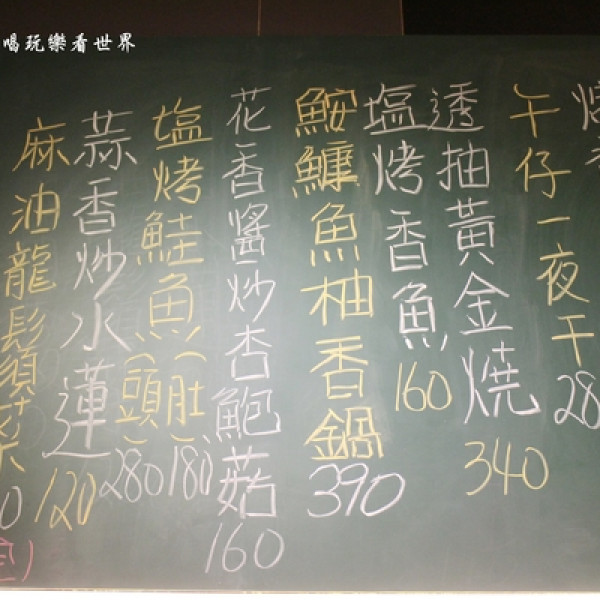 喝玩樂看世界
午仔一夜干 28
透抽黃金燒 340
塩烤香魚 160
鮟鱇魚柚香鍋 390
花香醬炒杏鮑菇 160
塩烤鮭魚(頭)(肚) 280 180
蒜香炒水蓮 120
麻油龍鬚菜 0